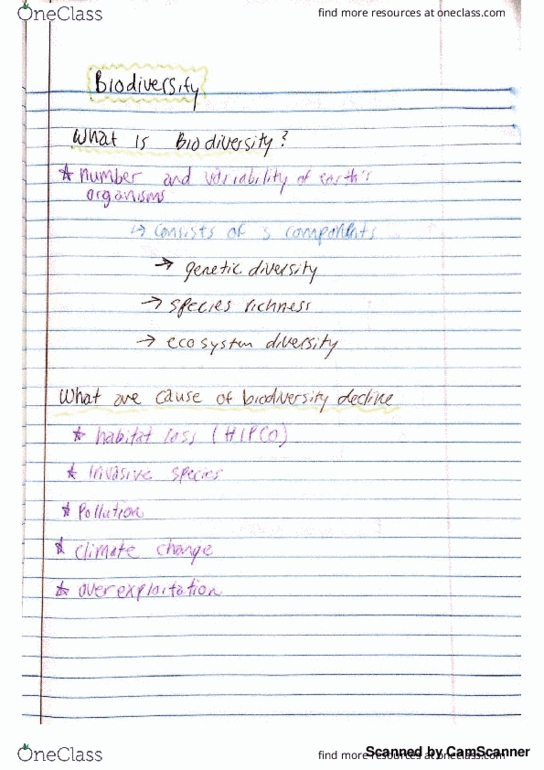 OneClass
find more resources at oneclass.com
Biodiversity
What is Biodiversity?
* number and variability of earth's
organisms
↳ consists of 3 components
→ genetic diversity
→ species richness
→ ecosystem diversity
What are cause of biodiversity decline
* habitat loss (HIPCO)
* invasive species
* Pollution
* climate change
* overexploitation
OneClass
find more resources at oneclass.com
Scanned by CamScanner